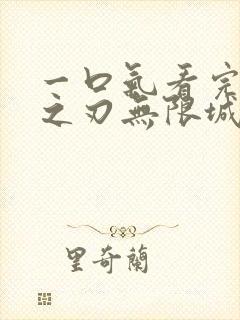 一口氣看完
之刃無限城
里奇蘭